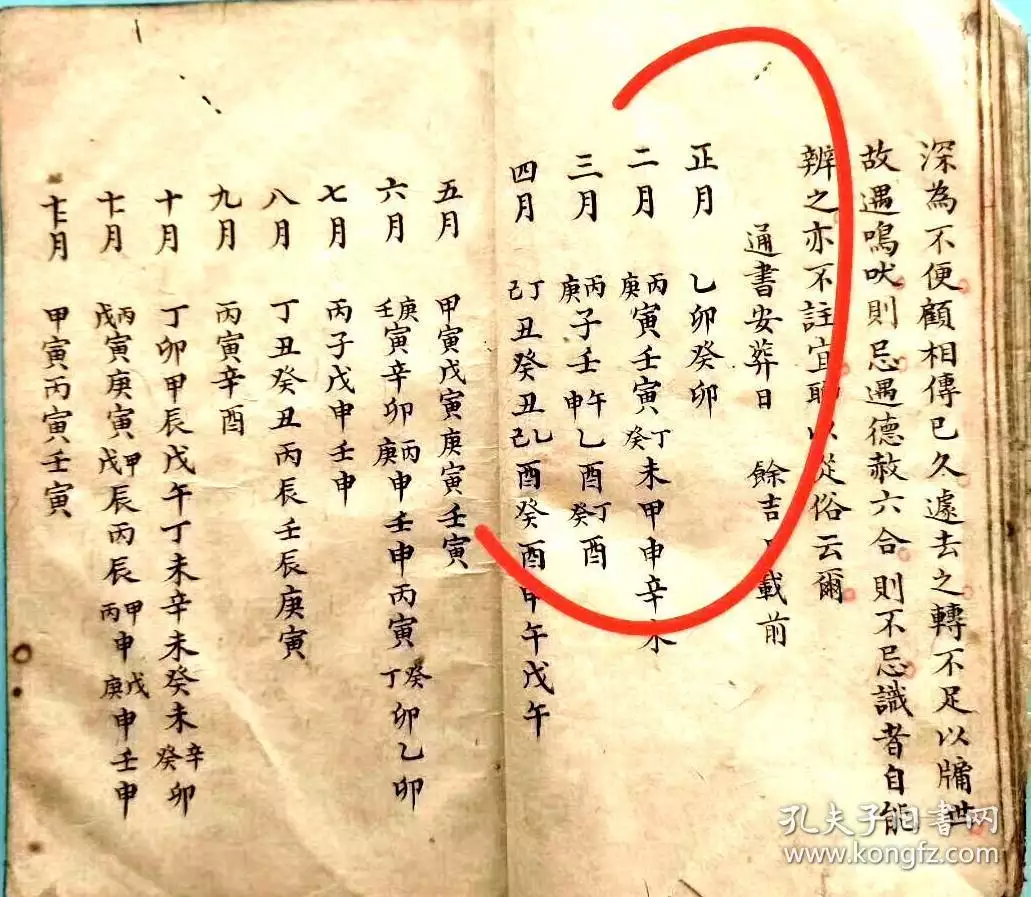 深為不便顧相傳已久遽去之轉不足以牖世
故遇鳴吠則忌遇德赦六合則不忌識者自能
辨之亦不註宜 以從俗云爾
通書安葬日 餘吉 載前
正月 乙卯癸卯
二月 丙庚寅壬寅丁癸未甲申辛未
三月 丙庚子壬午申乙酉丁癸酉
四月 丁己丑癸丑乙己酉癸酉甲午戊午
五月 甲寅戊寅庚寅壬寅
六月 庚壬寅辛卯丙庚申壬申丙寅癸丁卯乙卯
七月 丙子戊申壬申
八月 丁丑癸丑丙辰壬辰庚寅
九月 丙寅辛酉
十月 丁卯甲辰戊午丁未辛未癸未辛癸卯
十一月 丙戊寅庚寅甲戊辰丙辰甲丙申戊庚申壬申
十二月 甲寅丙寅壬寅
孔夫子旧書网
www.kongfz.com